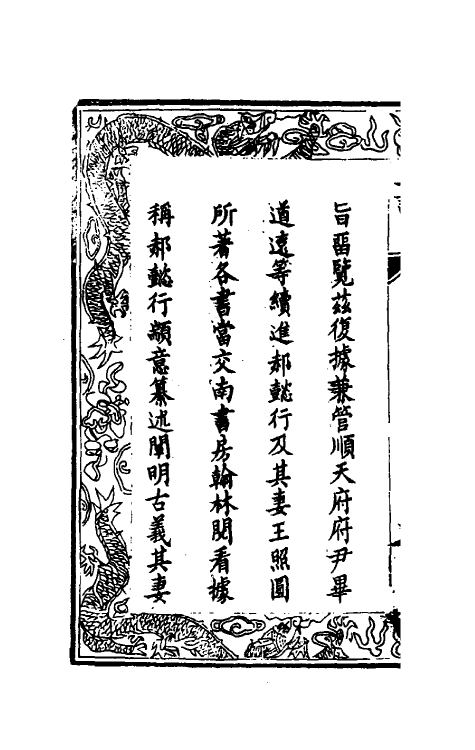 旨畱覽茲復據兼管順天府府尹畢
道遠等續進郝懿行及其妻王照圓
所著各書當交南書房翰林閱看據
稱郝懿行顓意纂述闡明古義其妻